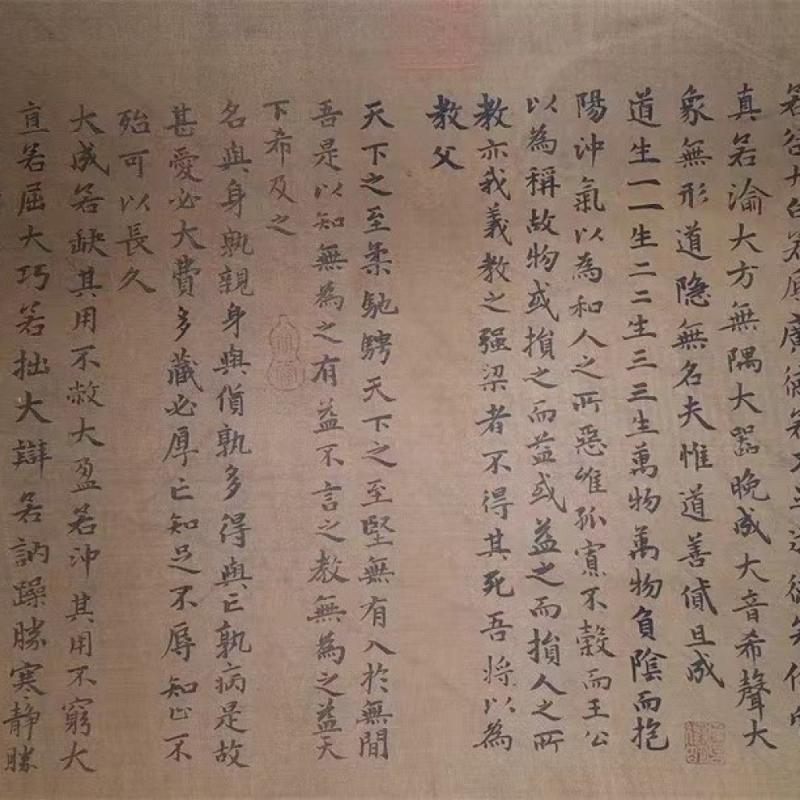 若谷大白若辱廣德若不足建德若
真若渝大方無隅大器晚成大音希聲大
象無形道隱無名夫惟道善貸且成
道生一一生二二生三三生萬物萬物負陰而抱
陽沖氣以為和人之所惡惟孤寡不穀而王公
以為稱故物或損之而益或益之而損人之所
教亦我義教之强梁者不得其死吾将以為
教父
天下之至柔馳騁天下之至堅無有入於無間
吾是以知無為之有益不言之教無為之益天
下希及之
名與身孰親身與貨孰多得與亡孰病是故
甚愛必大費多藏必厚亡知足不辱知止不
殆可以長久
大成若缺其用不敝大盈若沖其用不窮大
直若屈大巧若拙大辯若訥躁勝寒静勝